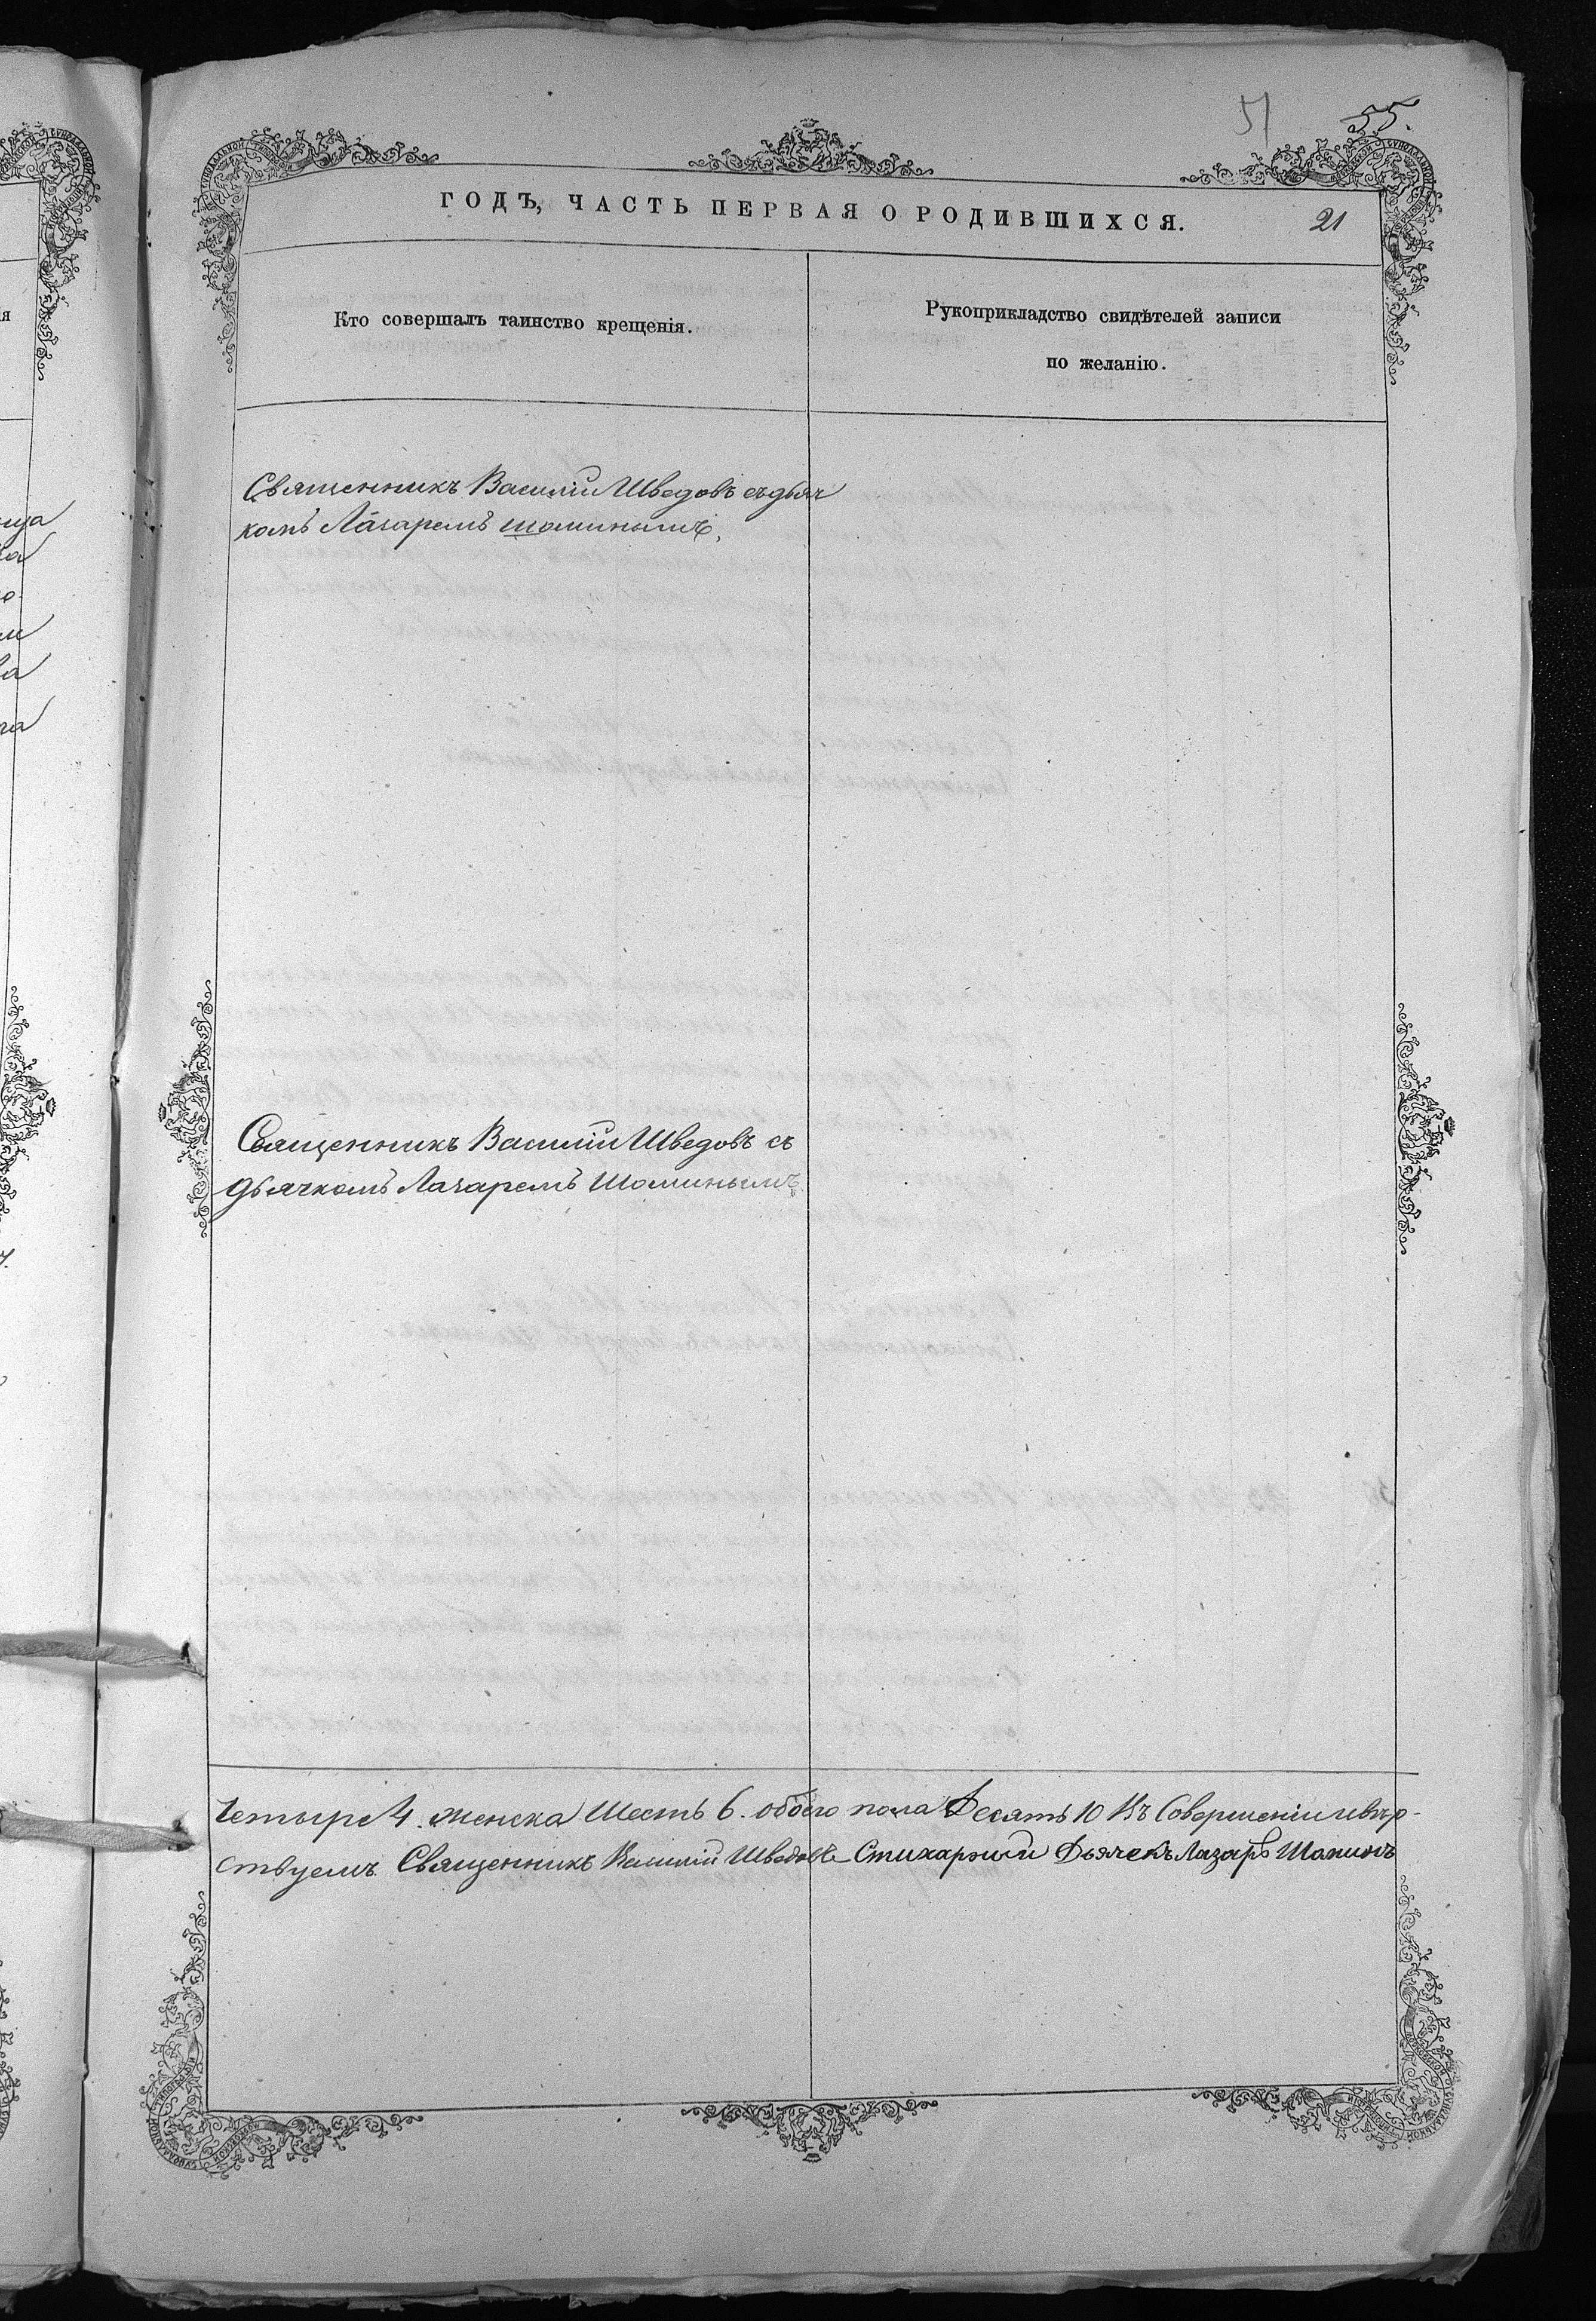 51 55.
ГОДЪ, ЧАСТЬ ПЕРВАЯ О РОДИВШИХСЯ. 21
Кто совершалъ таинство крещенія.
Рукоприкладство свидѣтелей записи
по желанію.
Священникъ Василій Шведовъ съ дьяч
комъ Лазаремъ Шоминымъ.
Священникъ Василій Шведовъ съ
дьячкомъ Лазаремъ Шоминымъ
Четыре 4. женска Шесть 6. обоего пола Десять 10 Въ Совершеніи
ствуемъ Священникъ Василій Шведовъ Стихарный Дьячекъ Лазарь Шоминъ